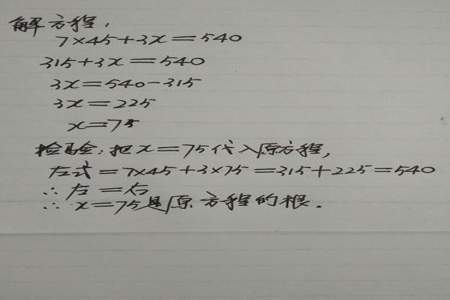 解方程,
7×45+3x=540
315+3x=540
3x=540-315
3x=225
x=75
检验:把x=75代入原方程,
左式=7×45+3×75=315+225=540
∴左=右
∴x=75是原方程的根.